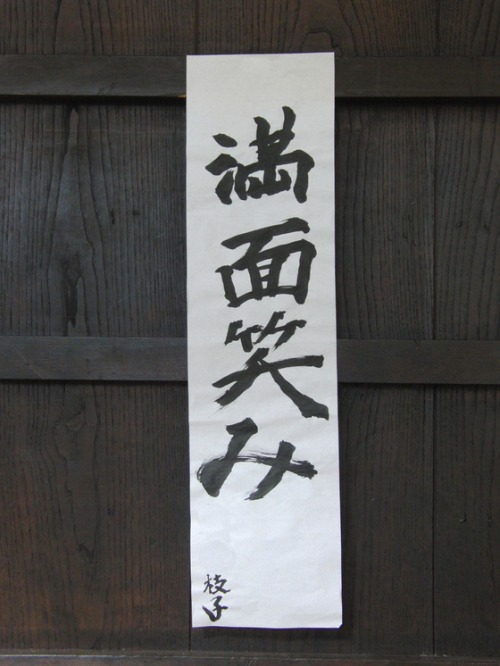 満面笑み
枝子